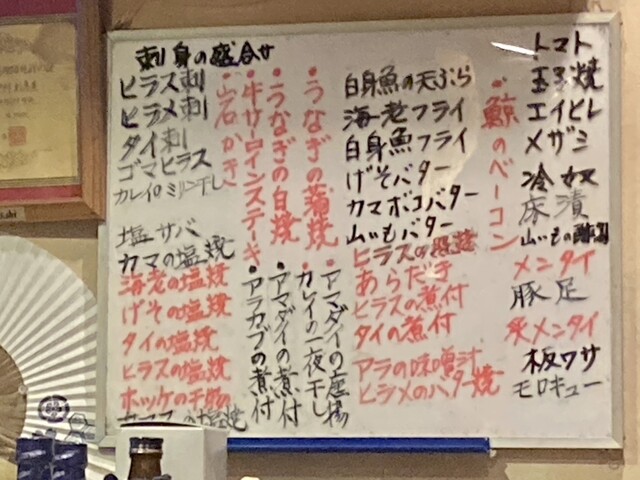 刺身の盛合せ
ヒラス刺
ヒラメ刺
タイ刺
ゴマヒラス
塩サバ
カマの塩焼
海老の塩焼
げその塩焼
タイの塩焼
ヒラスの塩焼
ホッケの干物
の塩焼
・岩かき
・牛サーロインステーキ
・うなぎの白焼
・うなぎの蒲焼
・アラカブの煮付
・アマダイの煮付
・カレイの一夜干し
・アマダイの塩焼
白身魚の天ぷら
海老フライ
白身魚フライ
げそバター
カマボコバター
山いもバター
ヒラスの照焼
あらだき
ヒラスの煮付
タイの煮付
アラの味噌汁
ヒラメのバター焼
・鯨のベーコン
トマト
玉子焼
エイヒレ
メザシ
冷奴
床漬
メンタイ
豚足
炙メンタイ
板ワサ
モロキュー